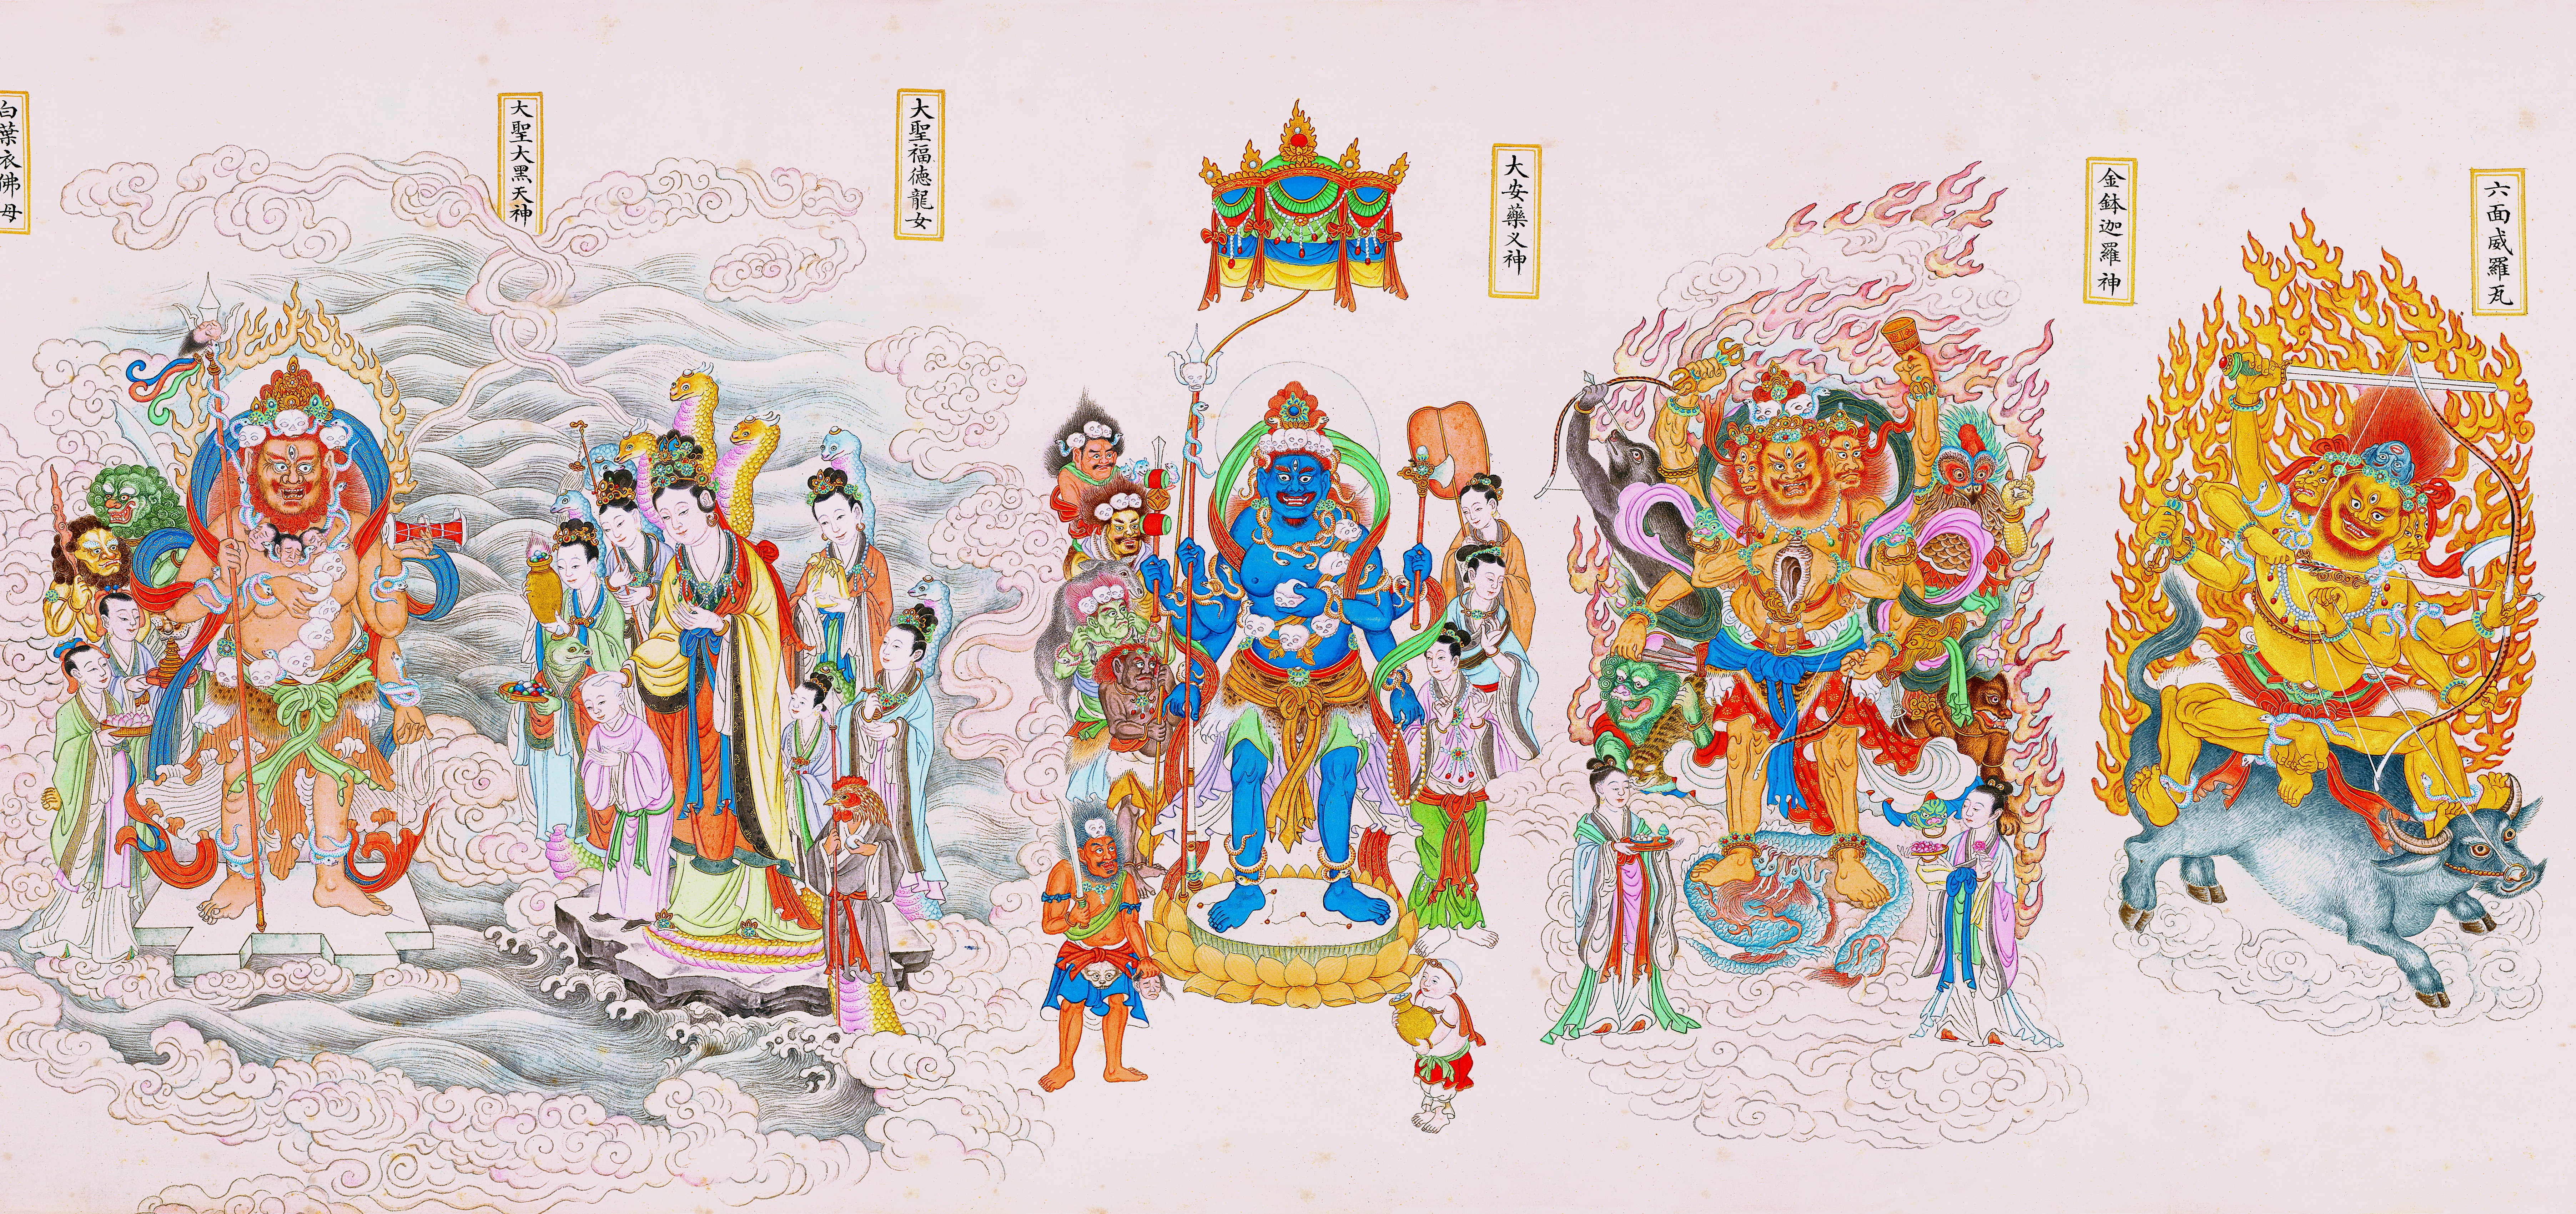 六面威羅瓦
金鉢迦羅神
大安藥义神
大聖福徳龍女
大聖大黑天神
白葉衣佛母